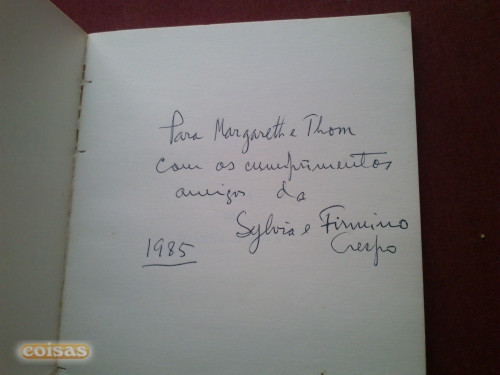 Para Margareth e Thom
com os cumprimentos
amigos da
Sylvia e Firmino
Crespo
1985
coisas